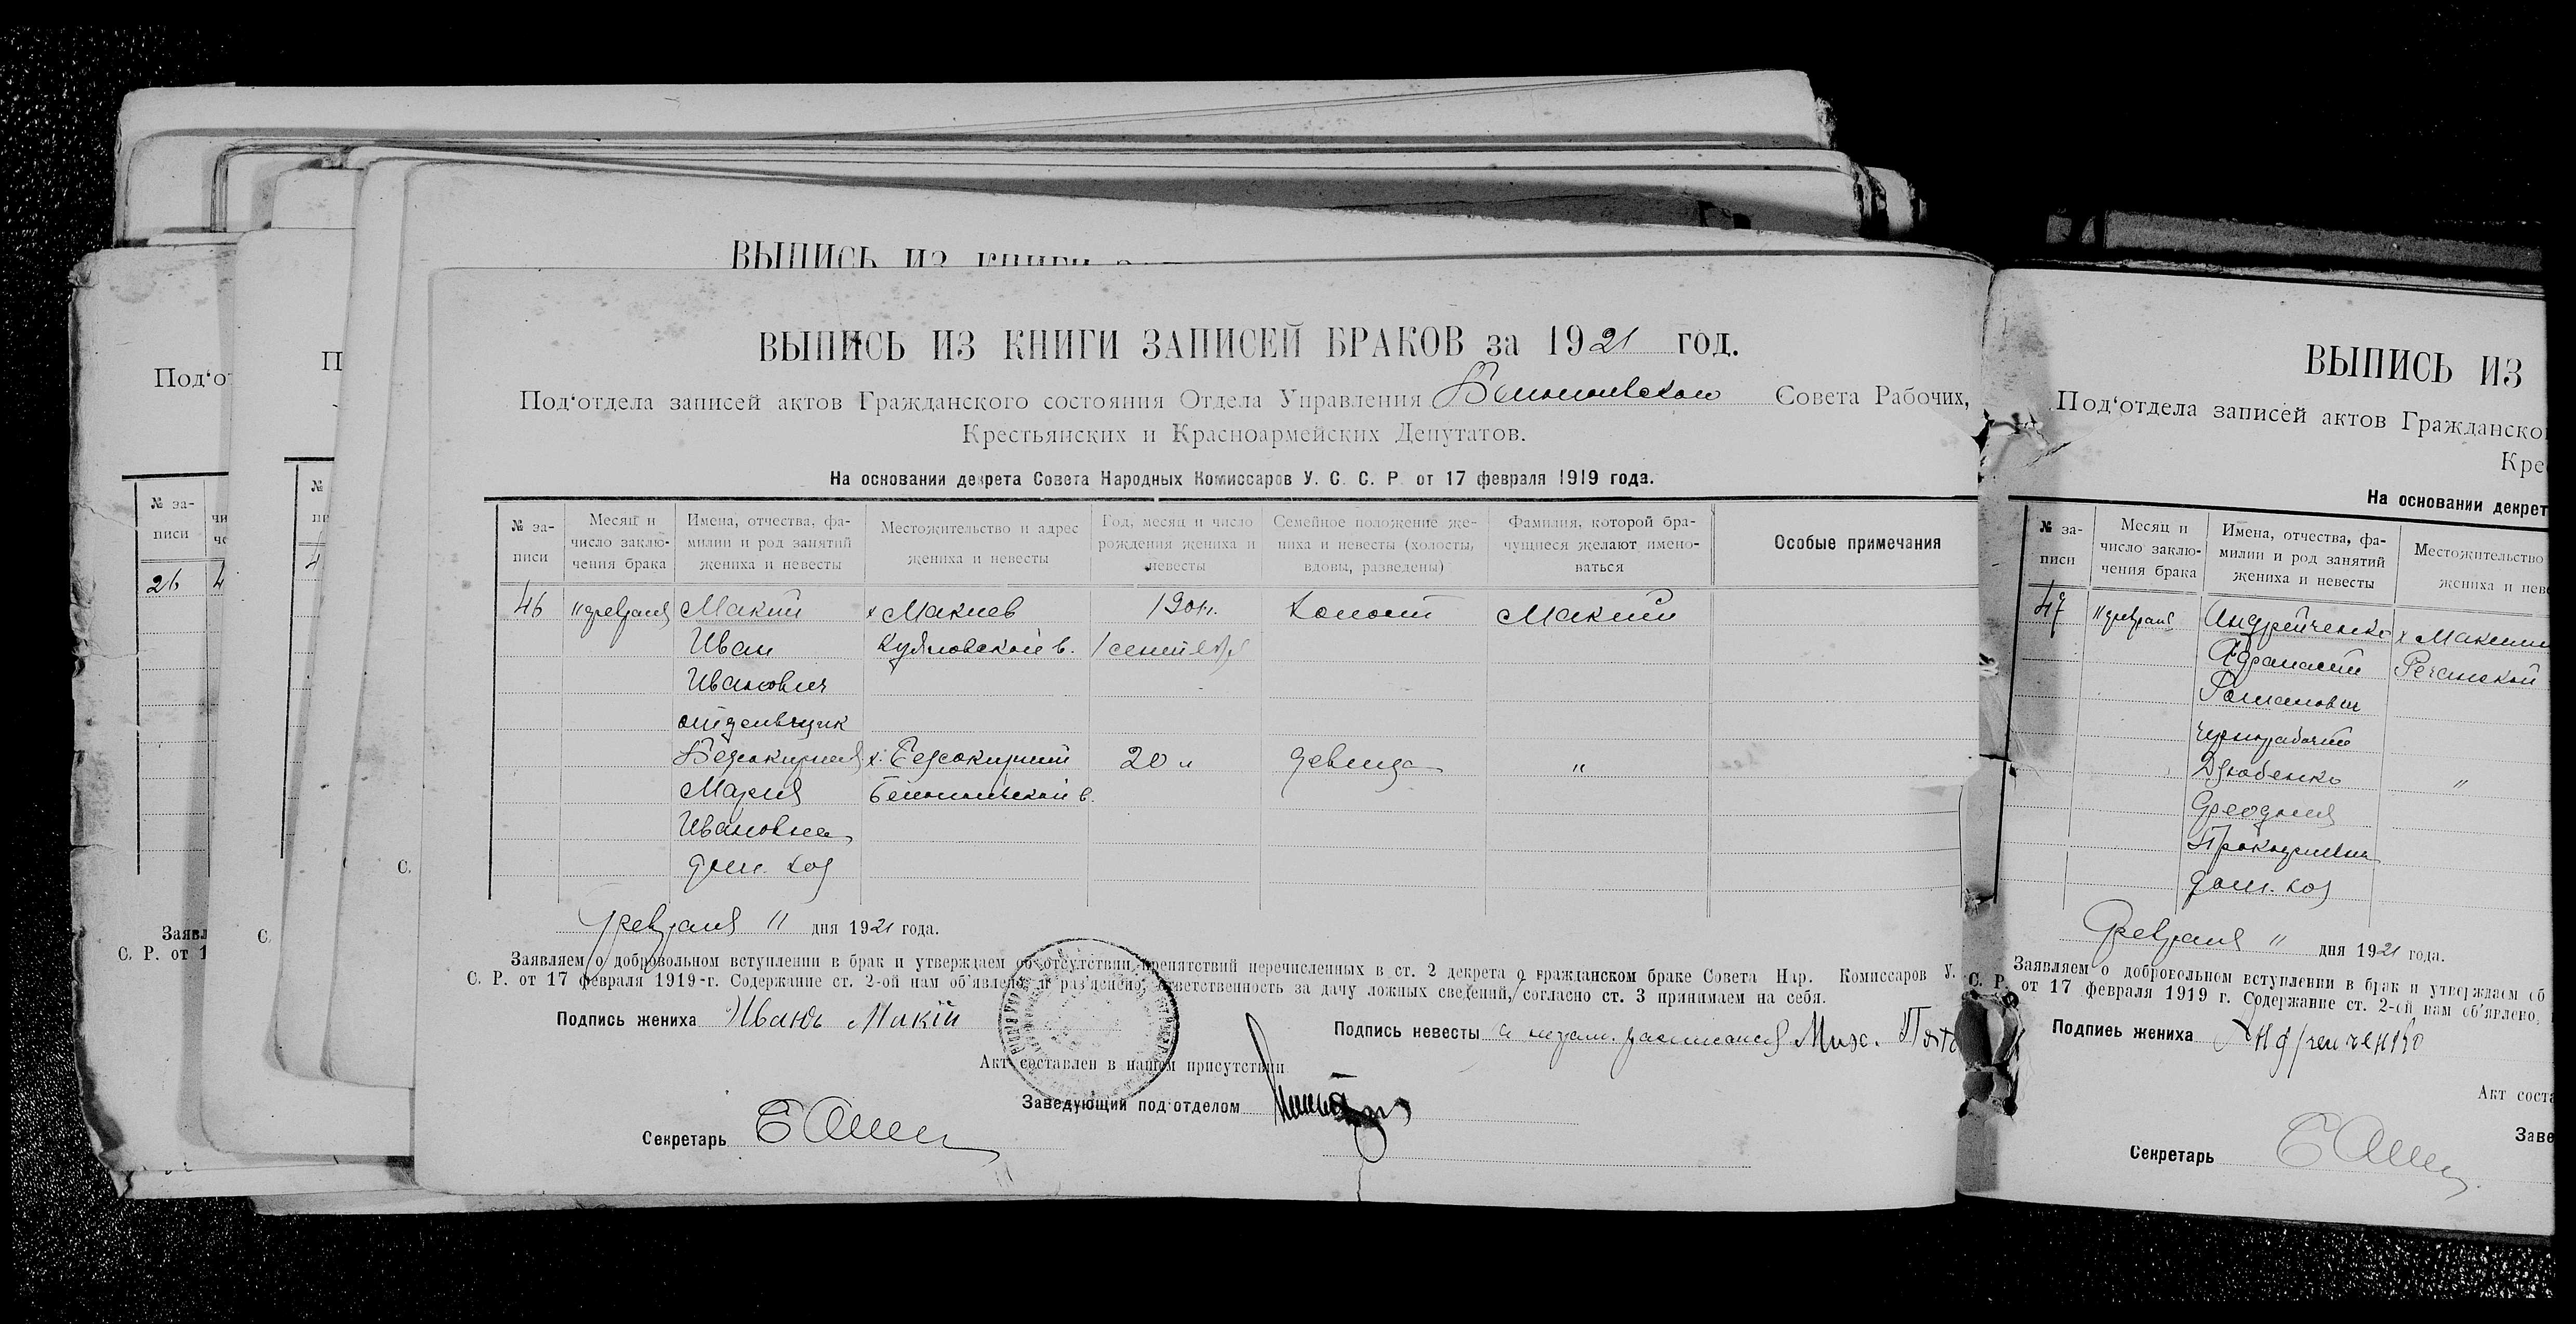 ВЫПИСЬ ИЗ КНИГИ
ВЫПИСЬ ИЗ КНИГИ ЗАПИСЕЙ БРАКОВ за 1921 год.
Под‘отдела записей актов Гражданского состояния Отдела Управления Совета Рабочих,
Крестьянских и Красноармейских Депутатов.
На основании декрета Совета Народных Комиссаров У. С. С. Р. от 17 февраля 1919 года.
№ за-
писи
Месяц и
число заклю-
чения брака
Имена, отчества, фа-
милии и род занятий
жениха и невесты
Местожительство и адрес
жениха и невесты
Год, месяц и число
рождения жениха и
невесты
Семейное положение же-
ниха и невесты (холосты,
вдовы, разведены)
Фамилия, которой бра-
чущиеся желают имено-
ваться
Особые примечания
46 11 февраля Макий х Макиев холост Макий
Иван 1 сентября
Иванович
Безокирная х. Безокирний 20 " девица "
Мария
Ивановна
дом. хоз
Февраля 11 дня 1921 года.
Заявляем о добровольном вступлении в брак и утверждаем об отсутствии препятствий перечисленных в ст. 2 декрета о гражданском браке Совета Нар. Комиссаров У.
С. Р. от 17 февраля 1919-г. Содержание ст. 2-ой нам об‘явлено и раз‘яснено, ответственность за дачу ложных сведений, согласно ст. 3 принимаем на себя.
Подпись жениха Иванъ Макій
Подпись невесты Мих.
Акт составлен в нашем присутствии
Заведующий под‘отделом
Секретарь
Под‘о
№ за-
писи
26 4
Заявл
С. Р. от 1
ВЫПИСЬ ИЗ
Под‘отдела записей актов Гражданско
Кре
На основании декрет
№ за-
писи
Месяц и
число заклю-
чения брака
Имена, отчества, фа-
милии и род занятий
жениха и невесты
Местожительство
жениха и нев
47 11 февраля Андрейченко
Афанасий
Романович
чернорабочий
Дзюбенко "
Феодосия
Прокофиевна
дом. хоз
Февраля 11 дня 1921 года.
Заявляем о добровольном вступлении в брак и утверждаем об
С. Р. от 17 февраля 1919 г. Содержание ст. 2-ой нам об‘явлено,
Подпись жениха
Акт соста
Заве
Секретарь